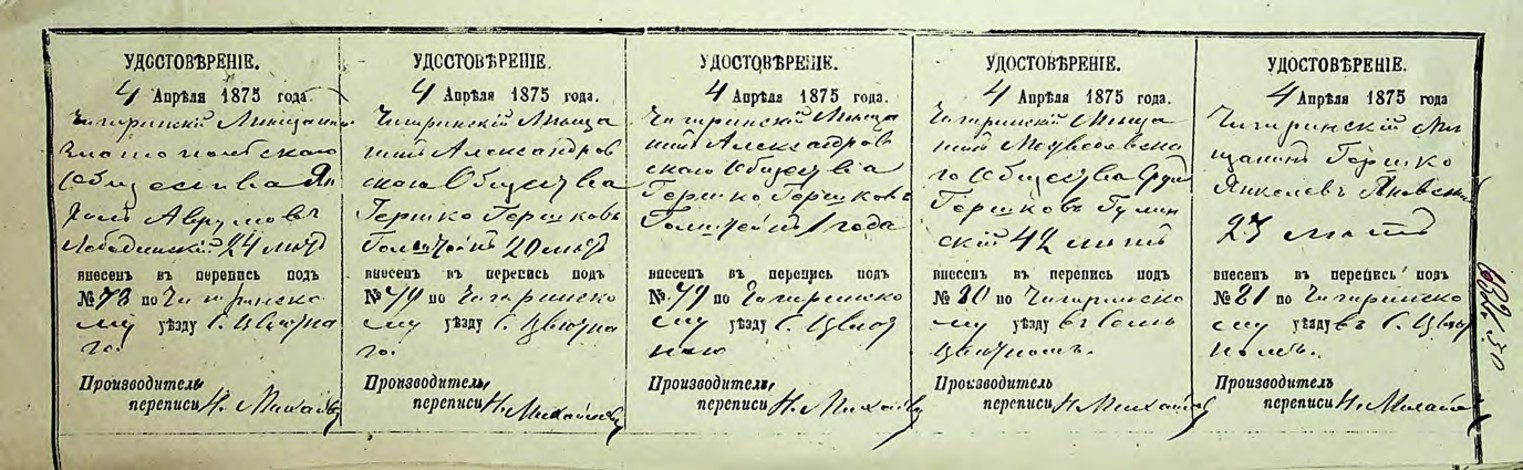 УДОСТОВѢРЕНІЕ.
4 Апрѣля 1875 года.
Чигиринскій Мѣщанинъ
Златопольскаго
Общества Ян
Аврумовъ
Лебединскій 24 лѣтъ
внесенъ въ перепись подъ
№ 78 по Чигиринско
му уѣзду С. Цвѣтна
го.
Производитель
переписи Н. Михайлов
УДОСТОВѢРЕНІЕ.
4 Апрѣля 1875 года.
Чигиринскій Мѣща
нинъ Александров
скаго Общества
Гершко Гершковъ
20 лѣтъ
внесенъ въ перепись подъ
№ 79 по Чигиринско
му уѣзду С. Цвѣтна
го.
Производитель
переписи Н. Михайлов
УДОСТОВѢРЕНІЕ.
4 Апрѣля 1875 года.
Чигиринскій Мѣща
нинъ Александров
скаго Общества
Гершко Гершковъ
1 года
внесенъ въ перепись подъ
№ 79 по Чигиринско
му уѣзду С. Цвѣт
ною
Производитель
переписи Н. Михайлов
УДОСТОВѢРЕНІЕ.
4 Апрѣля 1875 года.
Чигиринскій Мѣща
нинъ Медведовска
го Общества
Гершковъ Гулин
скій 42 лѣтъ
внесенъ въ перепись подъ
№ 80 по Чигиринско
му уѣзду въ Селѣ
Цвѣтномъ.
Производитель
переписи Н. Михайлов
УДОСТОВѢРЕНІЕ.
4 Апрѣля 1875 года
Чигиринскій Мѣ
щанинъ Гершко
Янкелевъ
27 лѣтъ
внесенъ въ перепись подъ
№ 81 по Чигиринско
му уѣзду въ С. Цвѣт
номъ.
Производитель
переписи Н. Михайлов